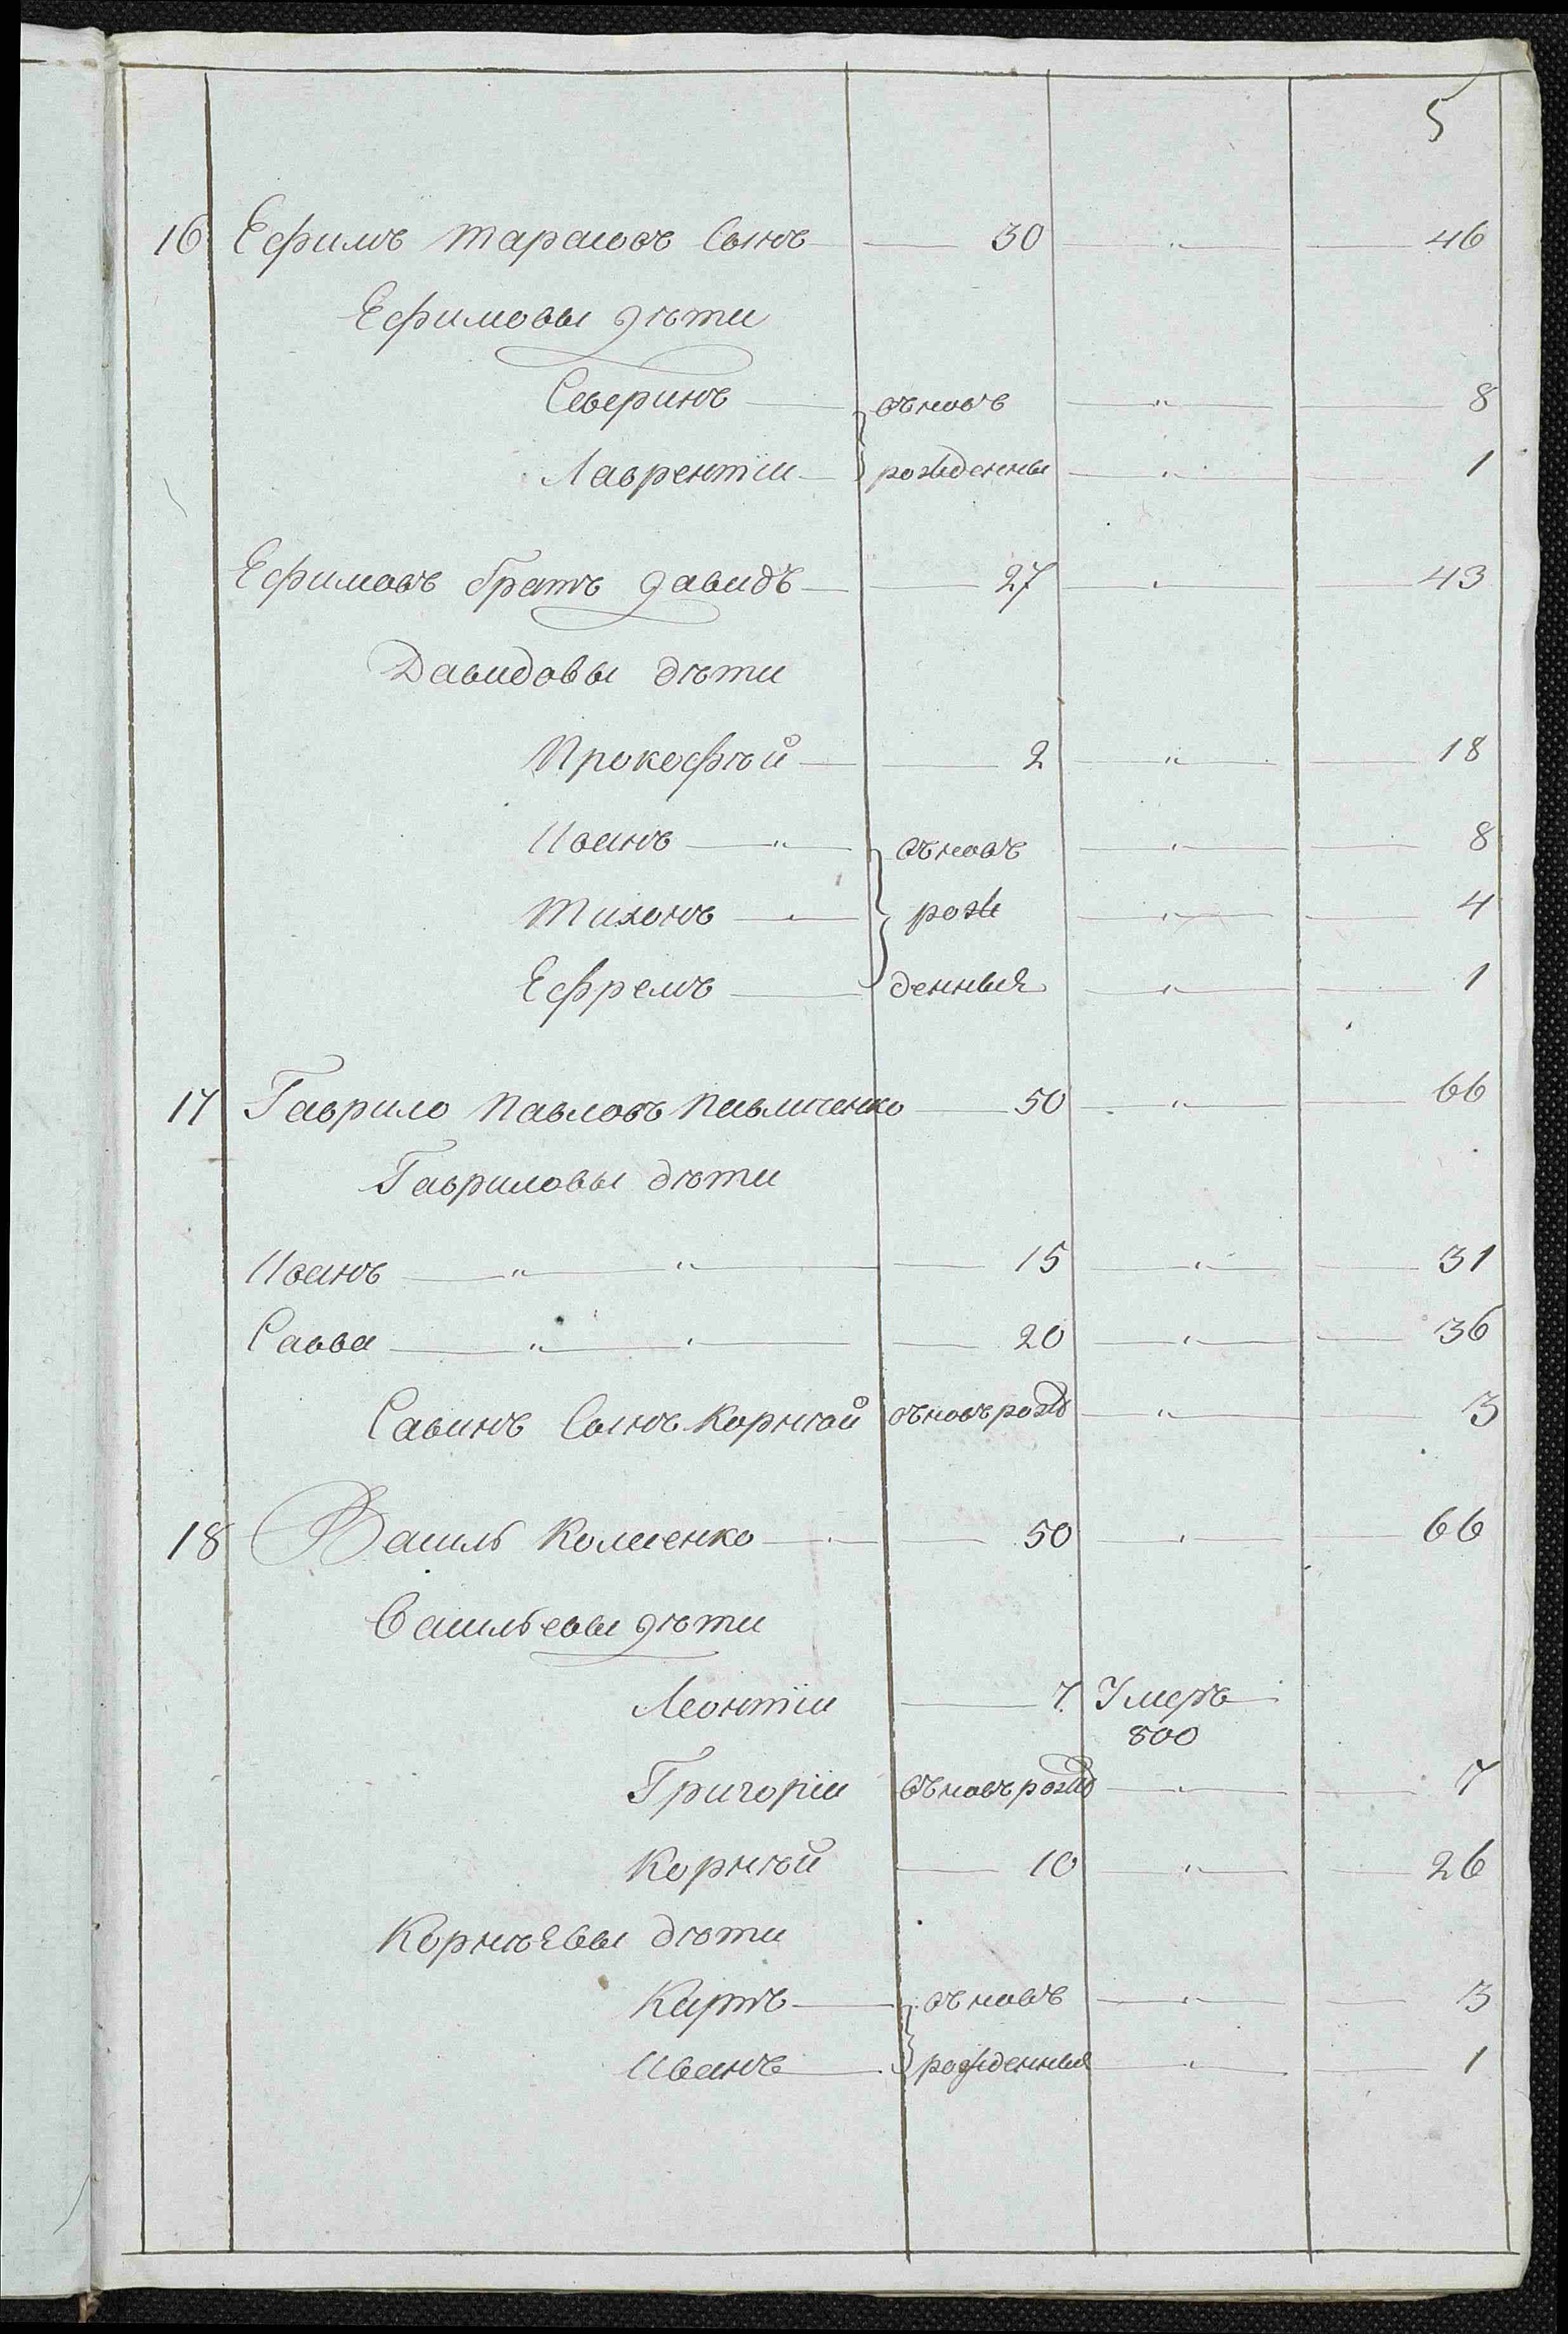 5
16 Ефимъ тарасовъ Сынъ 30 " 46
Ефимовы дѣти
Северинъ въновъ " 8
Лаврентіи рожденны " 1
Ефимовъ братъ давидъ 27 " 43
Давидовы дѣти
Прокофѣй 2 " 18
Иванъ " въновъ " 8
Тихонъ " рож " 4
Ефремъ денныя " 1
17 Гаврило Павловъ Павличенко 50 " 66
Гавриловы дѣти
Иванъ " " 15 " 31
Савва " " 20 " 36
Савинъ Сынъ Корнѣй въновъ рожд " 3
18 Василь 50 " 66
Васильевы дѣти
Леонтіи 7. Умеръ
800
Григоріи въновъ рожд " 7
Корнѣй 10 " 26
Корнѣевы дѣти
Карпъ въновъ " 3
Иванъ рожденныя " 1